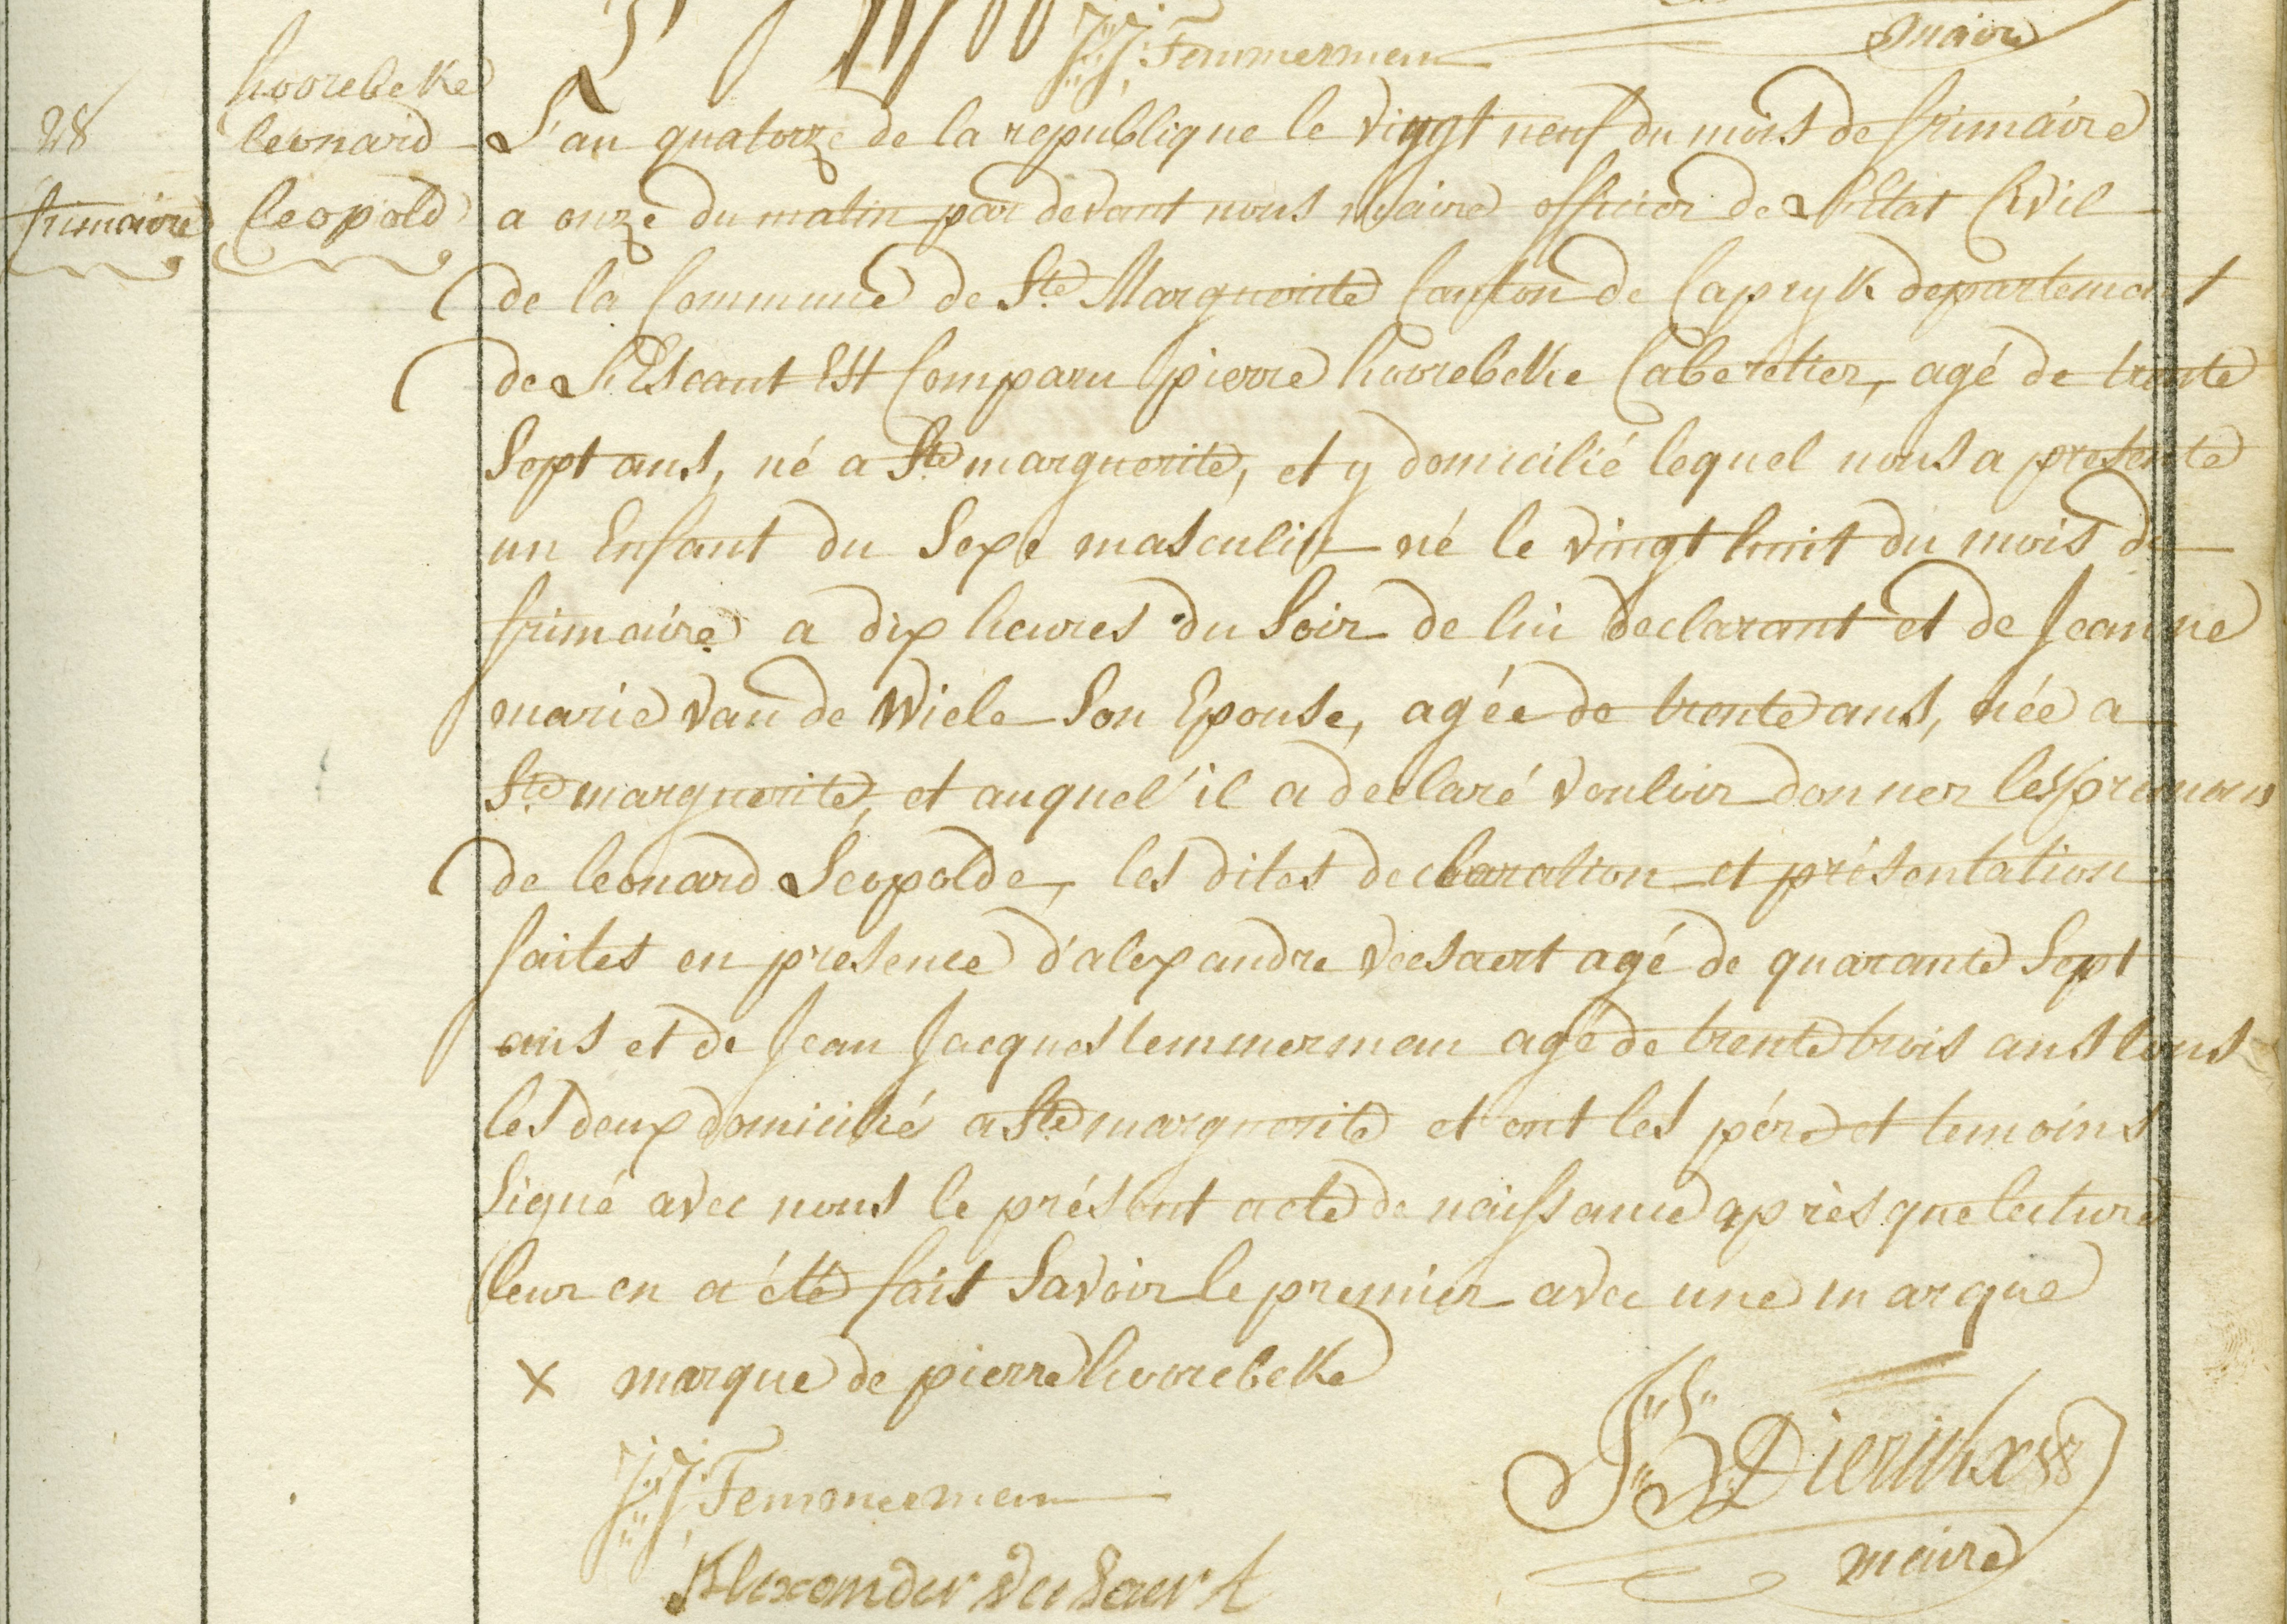 JJ Temmerman
maire
hoorebeke
28 leonard
frimaire leopold
L'an quatorze de la republique le vingt neuf du mois de frimaire
a onze du matin par devant nous maire officier de L'Etat Civil
de la Commune de Ste Marguerite Canton de Capryk departement
de L'Escaut Est Comparu pierre hoorebeke Cabaretier, agé de trente
Sept ans, né a Ste marguerite, et y domicilié lequel nous a presenté
un Enfant du Sexe masculin né le vingt huit du mois de
frimaire a dix heures du Soir de lui declarant et de Jeanne
marie van de Wiele Son Epouse, agée de trente ans, née a
Ste marguerite, et auquel il a declaré vouloir donner les prenoms
de leonard Leopolde, les dites declaration et présentation
faites en presence d'alexandre veesaert agé de quarante Sept
ans et de Jean Jacques temmerman agé de trente trois ans tous
les deux domicilié a Ste marguerite et ont les pére et temoins
Signé avec nous le présent acte de naissance après que lecture
leur en a été fait Savoir le premier avec une marque
x marque de pierre hoorebeke
JJ Temmerman
JB Dierinkx
maire
Alexander Veesaert